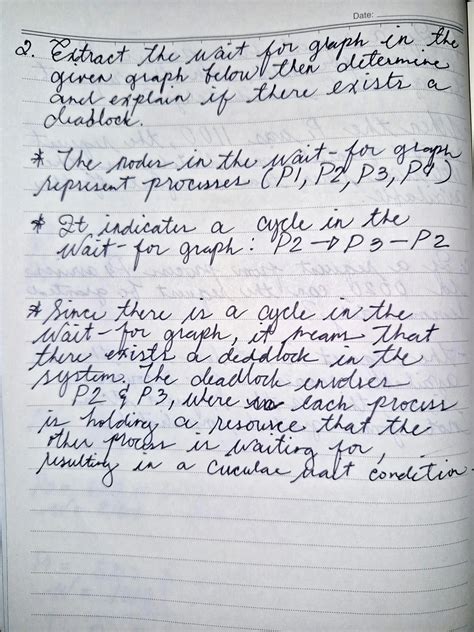 Date:
2. Extract the wait for graph in the
given graph below then determine
and explain if there exists a
deadlock.
* The nodes in the wait-for graph
represent processes (P1, P2, P3, P4)
* It indicates a cycle in the
Wait-for graph: P2 → P3 – P2
* Since there is a cycle in the
Wait-for graph, it means that
there exists a deddlock in the
system. The deadlock envolves
P2 & P3, were each process
is holding a resource that the
other process is waiting for,
resulting in a cuculae wait condition.